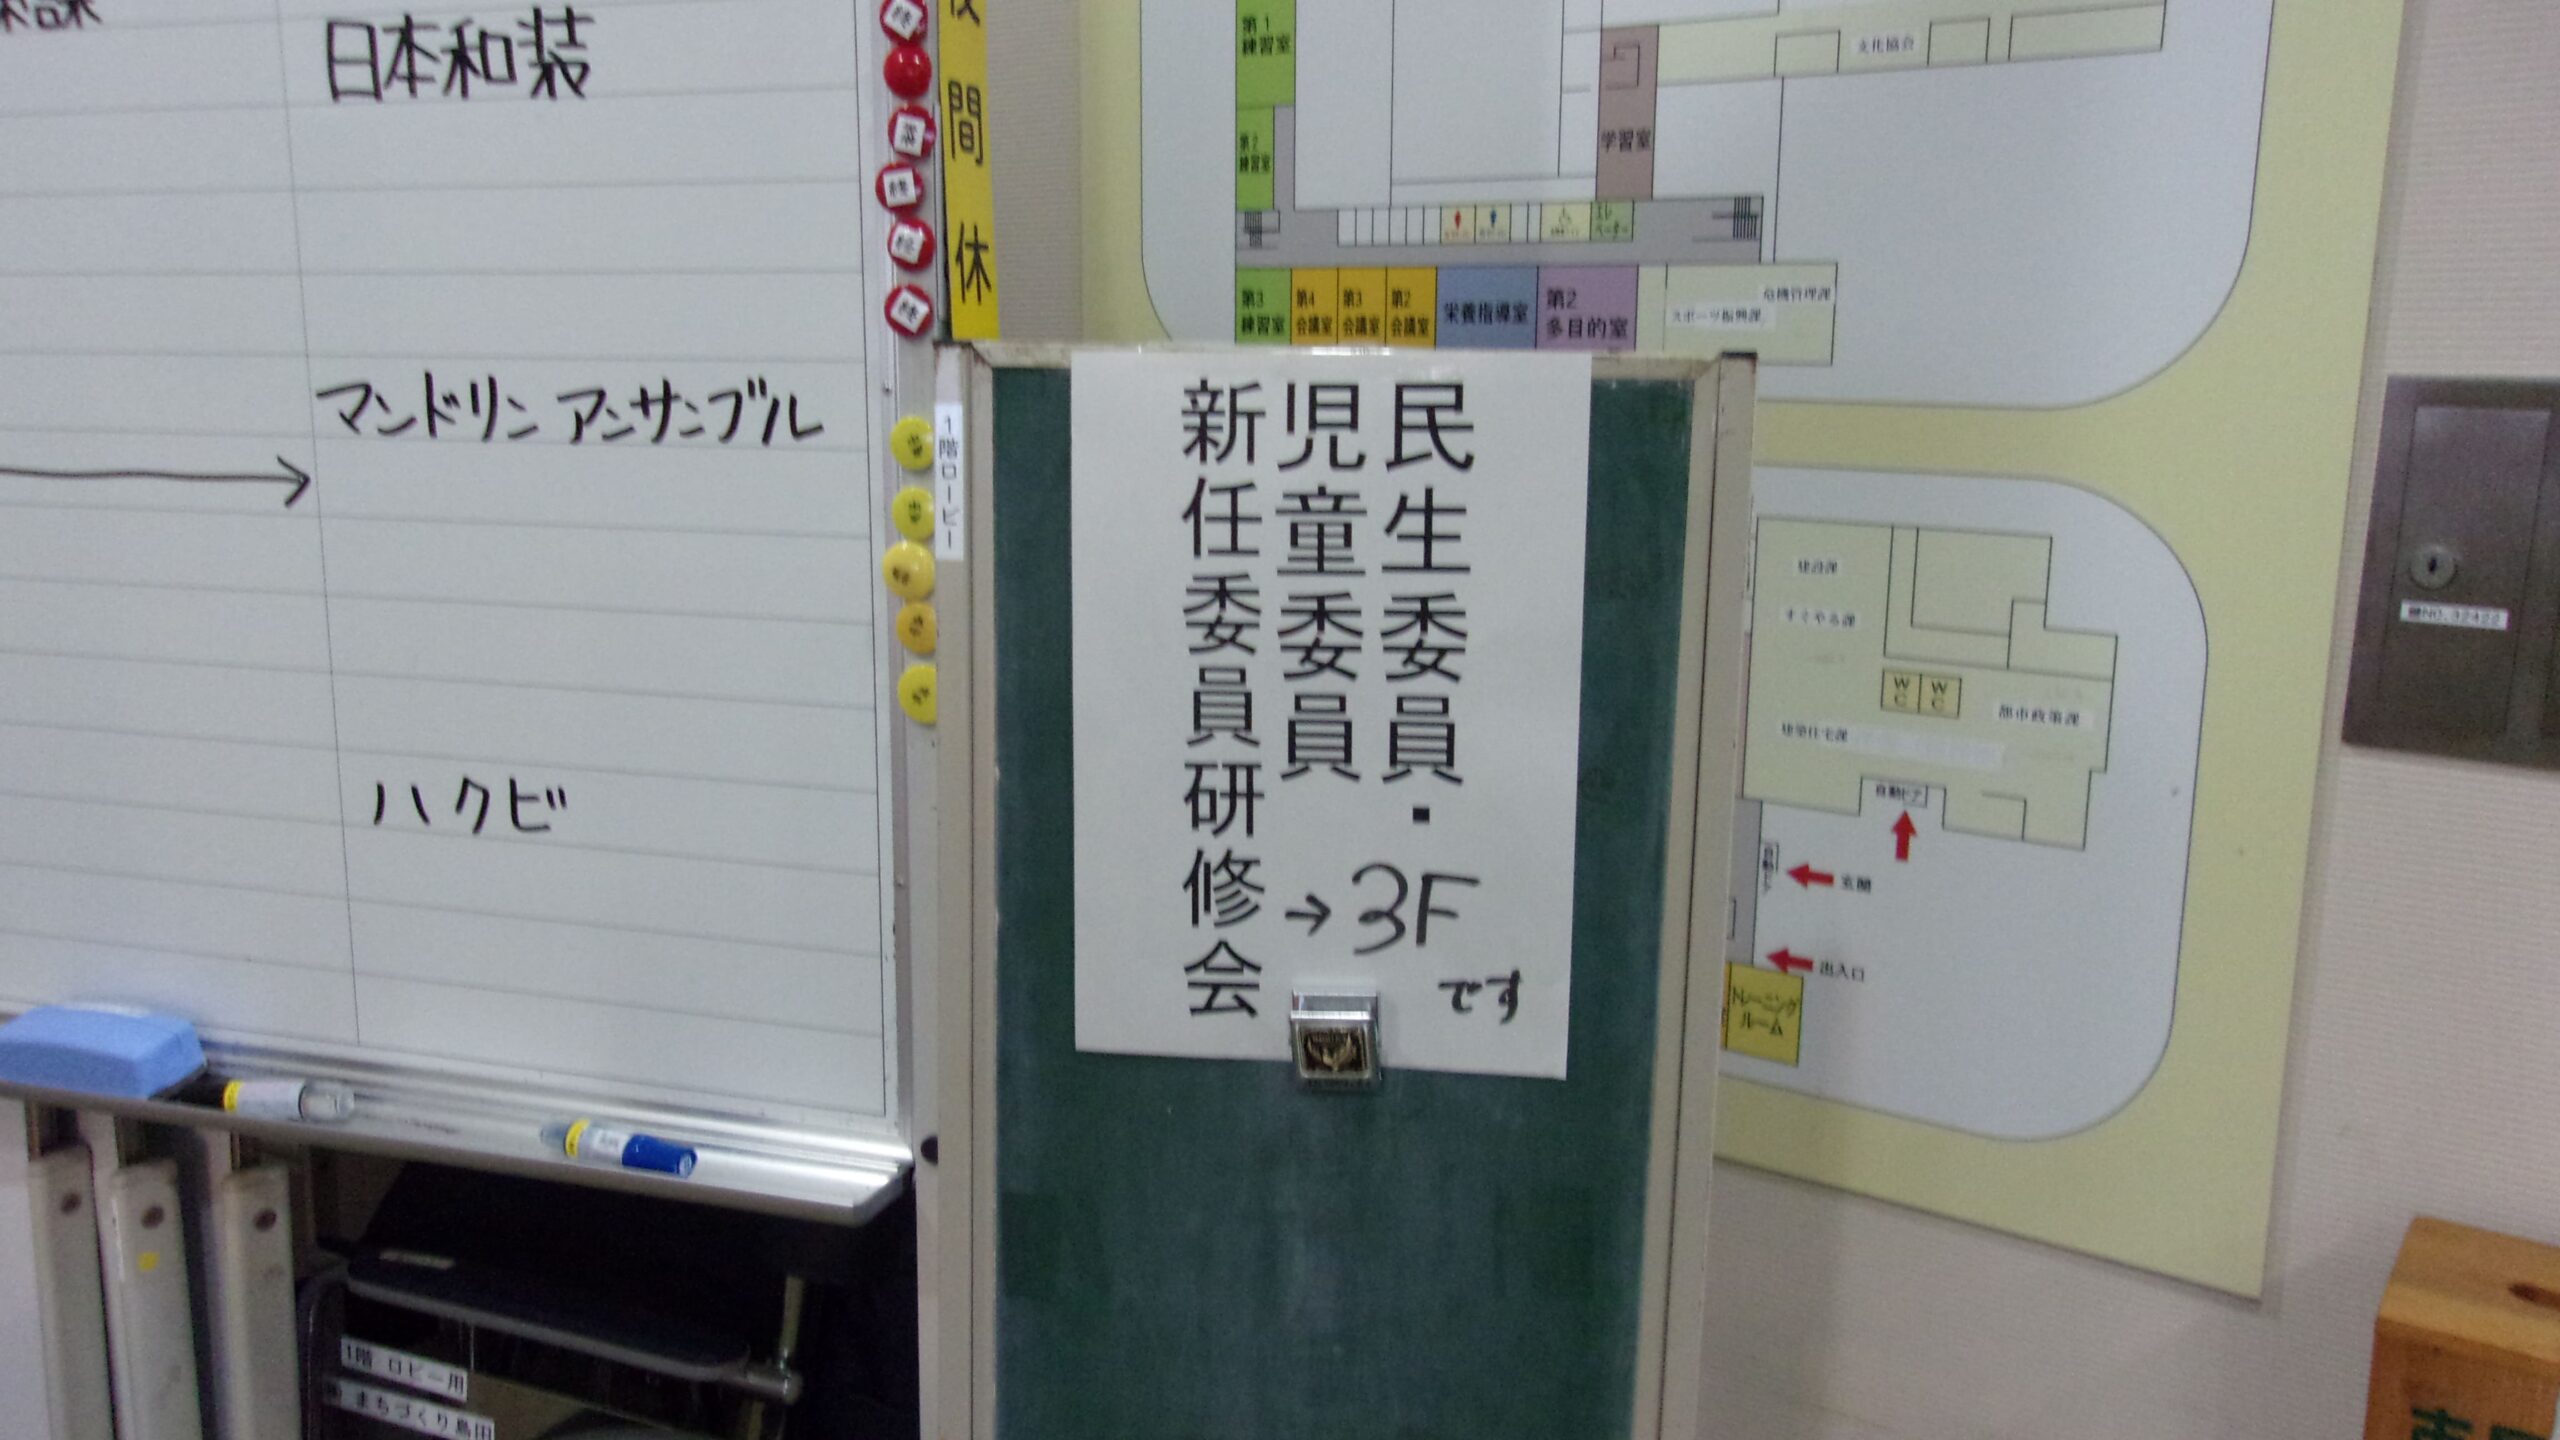 日本和装
マンドリン アンサンブル
ハクビ
夜間休
終
終
終
終
1階ロービー
民生委員・
児童委員
新任委員研修会
→3F
です
第1
練習室
第2
練習室
学習室
文化協会
エレ
ベーター
第3
練習室
第4
会議室
第3
会議室
第2
会議室
栄養指導室
第2
多目的室
危機管理課
スポーツ振興課
建設課
すぐやる課
WC
WC
都市政策課
建築住宅課
自動ドア
自動ドア
玄関
出入口
トレーニング
ルーム
鍵NO.32422
1階 ロビー用
まちづくり島田